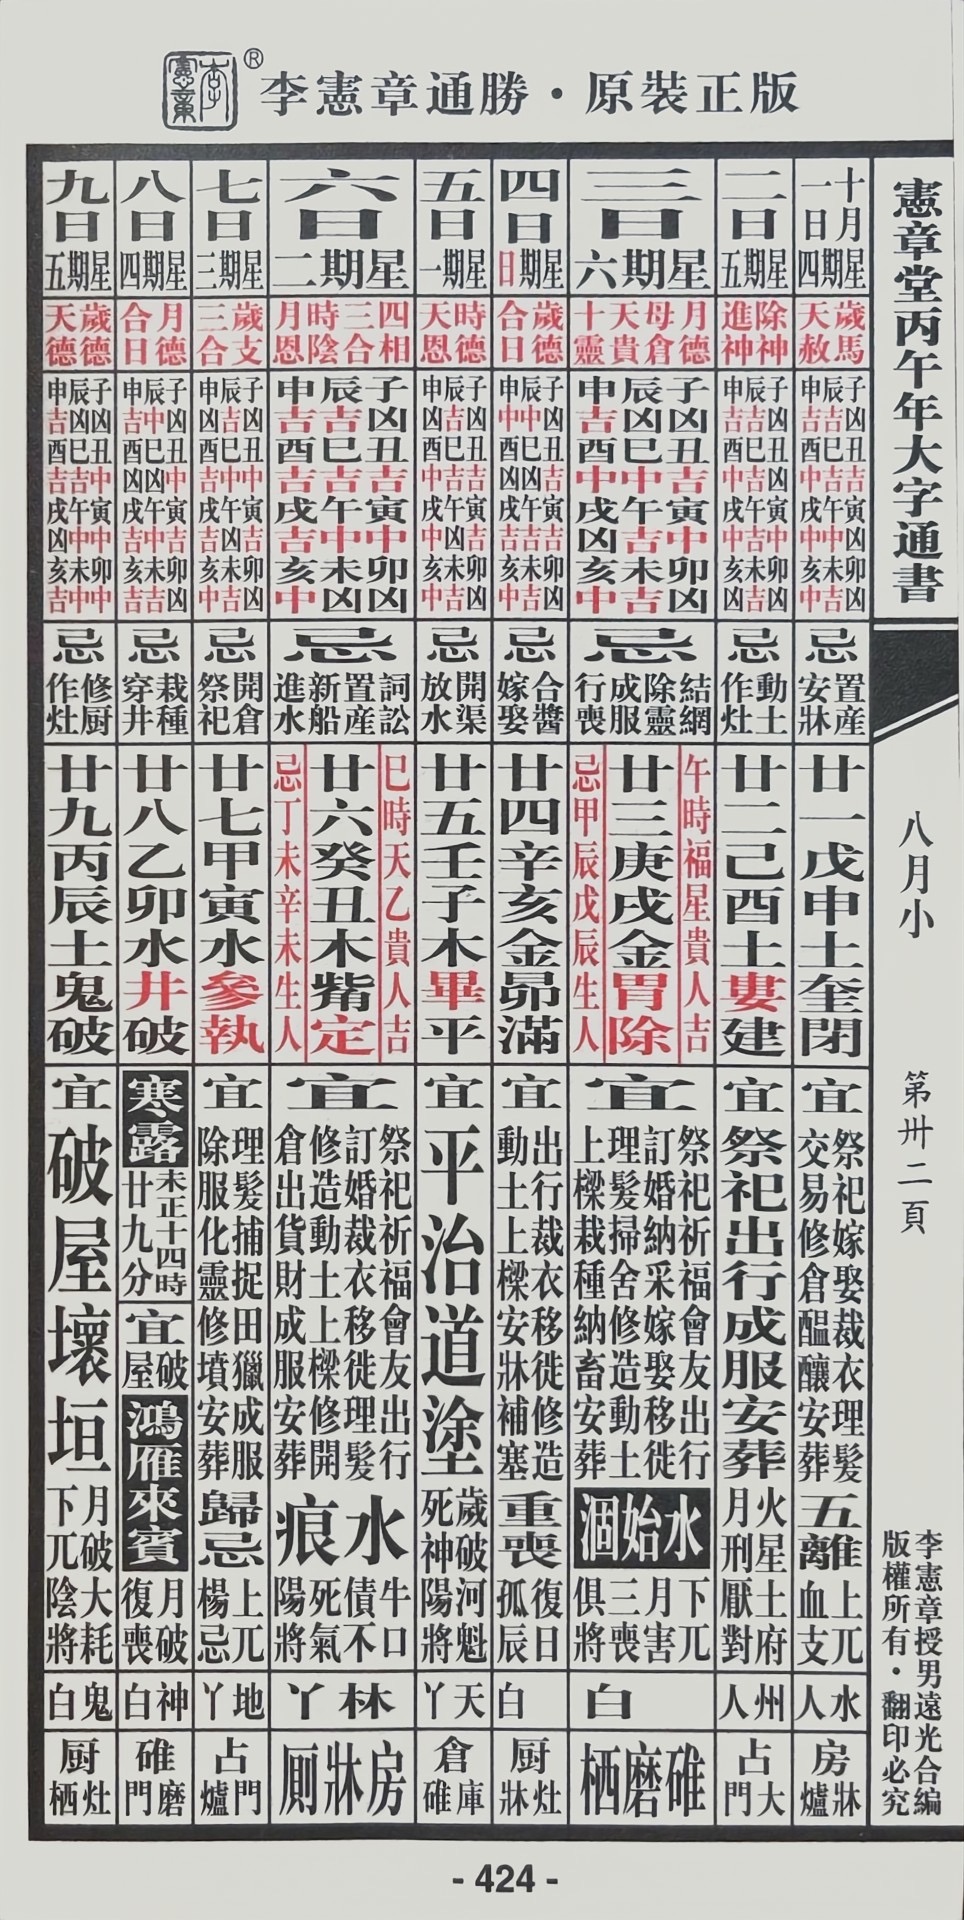 李憲章
®
李憲章通勝・原裝正版
憲章堂丙午年大字通書
八月小
第卅二頁
李憲章授男遠光合編
版權所有・翻印必究
十月
一日
星期四
歲馬
天赦
子凶丑吉寅凶卯凶
辰吉巳吉午中未吉
申吉酉中戌中亥中
忌
置產
安牀
廿一戊申土奎閉
宜
祭祀嫁娶裁衣理髮
交易修倉醞釀安葬
五離
上兀
血支
水人
房
牀爐
二日
星期五
除神
進神
子凶丑凶寅中卯凶
辰吉巳吉午吉未吉
申吉酉中戌中亥凶
忌
動土
作灶
廿二己酉土婁建
宜
祭祀出行成服安葬
火星土府
月刑厭對
州人
占
大門
三日
星期六
月德
母倉
天貴
十靈
子凶丑吉寅中卯凶
辰凶巳中午吉未吉
申吉酉中戌凶亥中
忌
結網
除靈
成服
行喪
午時福星貴人吉
廿三庚戌金胃除
忌甲辰戊辰生人
宜
祭祀祈福會友出行
訂婚納采嫁娶移徙
理髮掃舍修造動土
上樑栽種納畜安葬
水始涸
下兀
月害
三喪
俱將
白
碓磨栖
四日
星期日
歲德
合日
子凶丑吉寅吉卯凶
辰中巳凶午吉未吉
申中酉凶戌吉亥中
忌
合醬
嫁娶
廿四辛亥金昴滿
宜
出行裁衣移徙修造
動土上樑安牀補塞
重喪
復日
孤辰
白
厨
灶牀
五日
星期一
時德
天恩
子凶丑吉寅吉卯凶
辰吉巳吉午凶未吉
申凶酉中戌中亥中
忌
開渠
放水
廿五壬子木畢平
宜
平治道塗
歲破河魁
死神陽將
天丫
倉
庫碓
六日
星期二
四相
三合
時陰
月恩
子凶丑吉寅中卯凶
辰吉巳吉午中未凶
申吉酉吉戌吉亥中
忌
詞訟
置產
新船
進水
巳時天乙貴人吉
廿六癸丑木觜定
忌丁未辛未生人
宜
祭祀祈福會友出行
訂婚裁衣移徙理髮
修造動土上樑修開
倉出貨財成服安葬
水痕
牛口
債不
死氣
陽將
林丫
房牀厠
七日
星期三
歲支
三合
子凶丑中寅吉卯凶
辰吉巳中午凶未吉
申凶酉吉戌吉亥中
忌
開倉
祭祀
廿七甲寅水參執
宜
理髮捕捉田獵成服
除服化靈修墳安葬
歸忌
上兀
楊忌
地丫
占
門爐
八日
星期四
月德
合日
子凶丑中寅吉卯凶
辰中巳凶午中未吉
申吉酉凶戌吉亥吉
忌
栽種
穿井
廿八乙卯水井破
寒露
未正十四時
廿九分
宜
破屋
鴻雁來賓
月破
復喪
神白
碓
磨門
九日
星期五
歲德
天德
子凶丑中寅中卯中
辰凶巳吉午中未中
申吉酉吉戌凶亥吉
忌
修厨
作灶
廿九丙辰土鬼破
宜
破屋壞垣
月破大耗
下兀陰將
鬼白
厨
灶栖
- 424 -